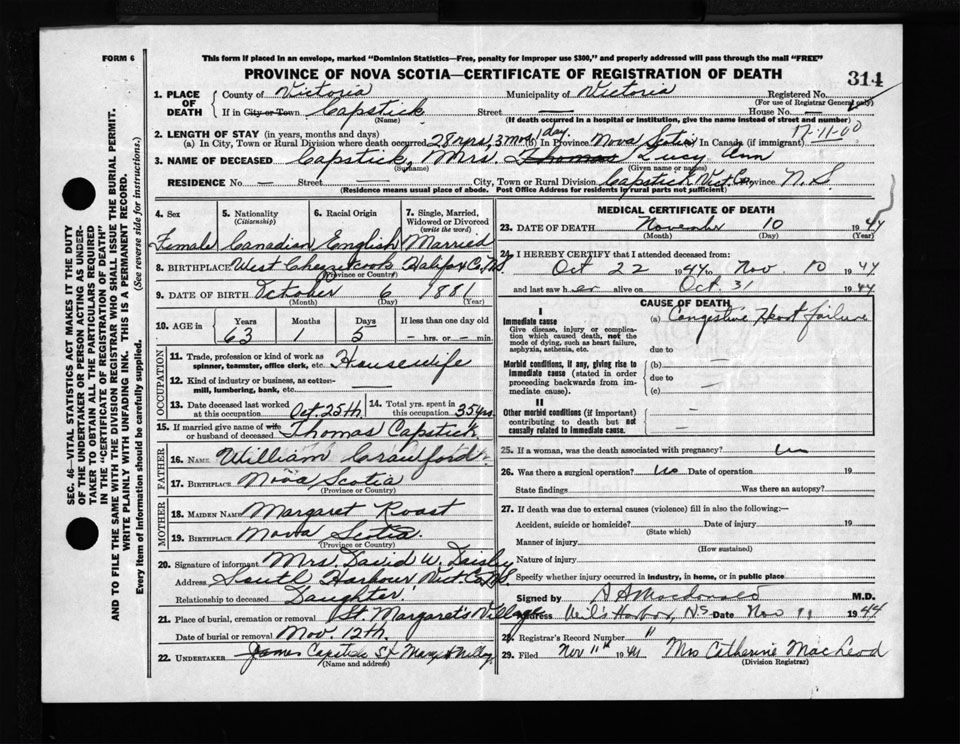 FORM 6
This form if placed in an envelope, marked "Dominion Statistics—Free, penalty for improper use $300," and properly addressed will pass through the mail "FREE"
PROVINCE OF NOVA SCOTIA—CERTIFICATE OF REGISTRATION OF DEATH
314
1. PLACE OF DEATH
County of Victoria Municipality of Victoria Registered No.
(For use of Registrar General only)
If in City or Town Capstick Street — House No. —
(Name) (If death occurred in a hospital or institution, give the name instead of street and number)
2. LENGTH OF STAY (in years, months and days)
(a) In City, Town or Rural Division where death occurred 28 yrs, 3 mos, 1 day. (b) In Province Nova Scotia In Canada (if immigrant)
17-11-00
3. NAME OF DECEASED Capstick, Mrs. Thomas Lucy Ann
(Surname) (Given name or names)
RESIDENCE No — Street — City, Town or Rural Division Capstick Vict. Co., Province N.S.
(Residence means usual place of abode. Post Office Address for residents in rural parts not sufficient)
4. Sex
Female
5. Nationality
(Citizenship)
Canadian
6. Racial Origin
English
7. Single, Married, Widowed or Divorced
(write the word)
Married
8. BIRTHPLACE West Chezzetcook Halifax Co. N.S.
(Province or Country)
9. DATE OF BIRTH October 6 1881
(Month) (Day) (Year)
10. AGE in
Years Months Days If less than one day old
63 1 5 — hrs. or — min.
OCCUPATION
11. Trade, profession or kind of work as spinner, teamster, office clerk, etc. Housewife
12. Kind of industry or business, as cotton-mill, lumbering, bank, etc. —
13. Date deceased last worked at this occupation Oct. 25th
14. Total yrs. spent in this occupation 35 yrs.
15. If married give name of wife or husband of deceased Thomas Capstick
FATHER
16. NAME William Crawford
17. BIRTHPLACE Nova Scotia
(Province or Country)
MOTHER
18. MAIDEN NAME Margaret Roast
19. BIRTHPLACE Nova Scotia
(Province or Country)
20. Signature of informant Mrs. David W. Daisley
Address South Harbour Vict. Co. N.S.
Relationship to deceased Daughter
21. Place of burial, cremation or removal St. Margaret's Village
Date of burial or removal Nov. 12th
22. UNDERTAKER James Capstick St Margt Village
(Name and address)
MEDICAL CERTIFICATE OF DEATH
23. DATE OF DEATH November 10 1944
(Month) (Day) (Year)
24. I HEREBY CERTIFY that I attended deceased from:
Oct 22 1944 to Nov 10 1944
and last saw her alive on Oct. 31 1944
CAUSE OF DEATH
I
Immediate cause
Give disease, injury or complication which caused death, not the mode of dying, such as heart failure, asphyxia, asthenia, etc.
(a) Congestive Heart failure
due to —
Morbid conditions, if any, giving rise to immediate cause (stated in order proceeding backwards from immediate cause).
(b) —
due to
(c) —
II
Other morbid conditions (if important) contributing to death but not causally related to immediate cause.
—
25. If a woman, was the death associated with pregnancy? no
26. Was there a surgical operation? no Date of operation 19
State findings Was there an autopsy?
27. If death was due to external causes (violence) fill in also the following:—
Accident, suicide or homicide? Date of injury 19
(State which)
Manner of injury
(How sustained)
Nature of injury
Specify whether injury occurred in industry, in home, or in public place
Signed by A A Macdonald M.D.
Address Neil's Harbor, N.S. Date Nov 11 1944
28. Registrar's Record Number 11
29. Filed Nov 11th 1944 Mrs Catherine MacLeod
(Division Registrar)
SEC. 46—VITAL STATISTICS ACT MAKES IT THE DUTY
OF THE UNDERTAKER OR PERSON ACTING AS UNDER-
TAKER TO OBTAIN ALL THE PARTICULARS REQUIRED
IN THE "CERTIFICATE OF REGISTRATION OF DEATH"
AND TO FILE THE SAME WITH THE DIVISION REGISTRAR WHO SHALL ISSUE THE BURIAL PERMIT.
WRITE PLAINLY WITH UNFADING INK. THIS IS A PERMANENT RECORD.
Every item of information should be carefully supplied. (See reverse side for instructions.)